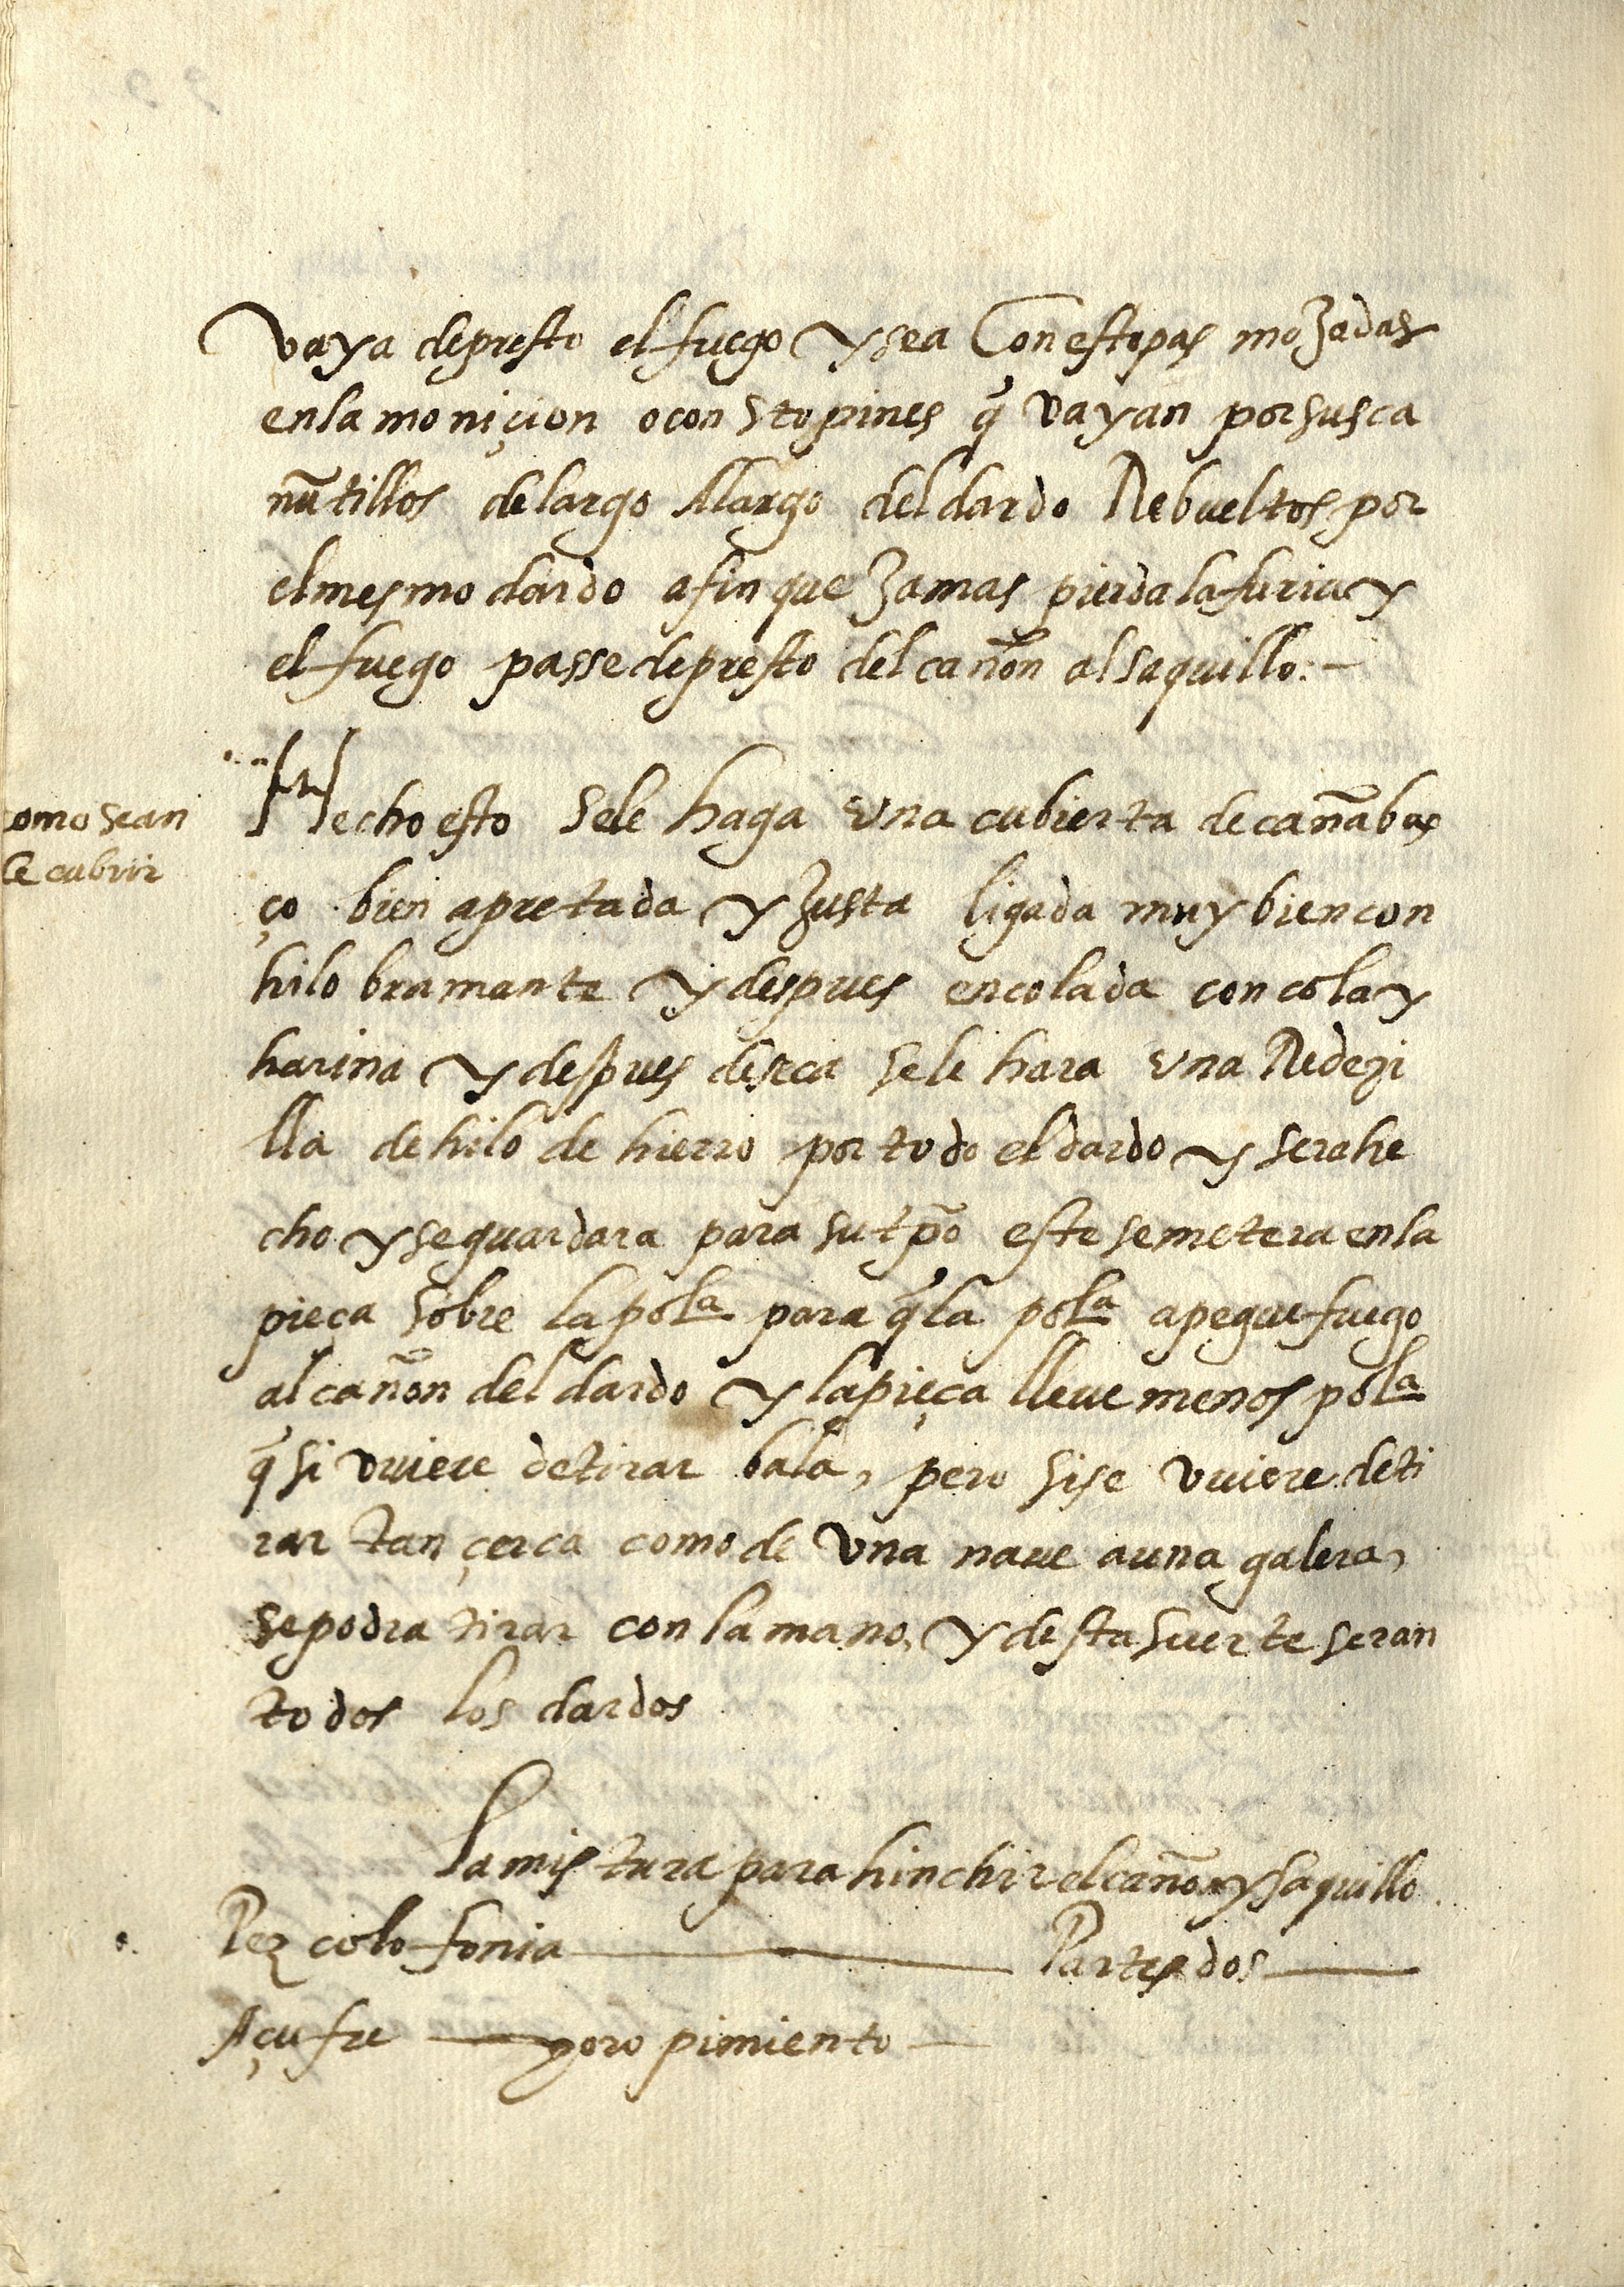 vaya depresto el fuego y sea Con estopas mozadas
en la moniçion o con stopines q̃ vayan por sus ca
nũtillos de largo Allargo del dardo Rebueltos por
el mesmo dardo a fin que Jamas pierda la furia y
el fuego passe depresto del cañon al saquillo:-
como se an
de cubrir
Hecho esto se le haga vna cubierta de cañabas
ço bien apretada y Justa ligada muy bien con
hilo bramante y despues encolada con cola y
harina y despues de seca se le hara vna Redezi
lla de hilo de hierro por todo el dardo y sera he
cho y se guardara para su tp̃o este se metera en la
pieça sobre la polª para q̃ la polª apegue fuego
al cañon del dardo y la pieça lleue menos polª
q̃ si vuiere de tirar bala, pero si se vuiere de ti
rar tan çerca como de vna naue a vna galera,
se podra tirar con la mano, y desta suerte seran
todos los dardos
La mistura para hinchir el cañon y saquillo
Pez colofonia Partes dos
Açufre y oro pimiento